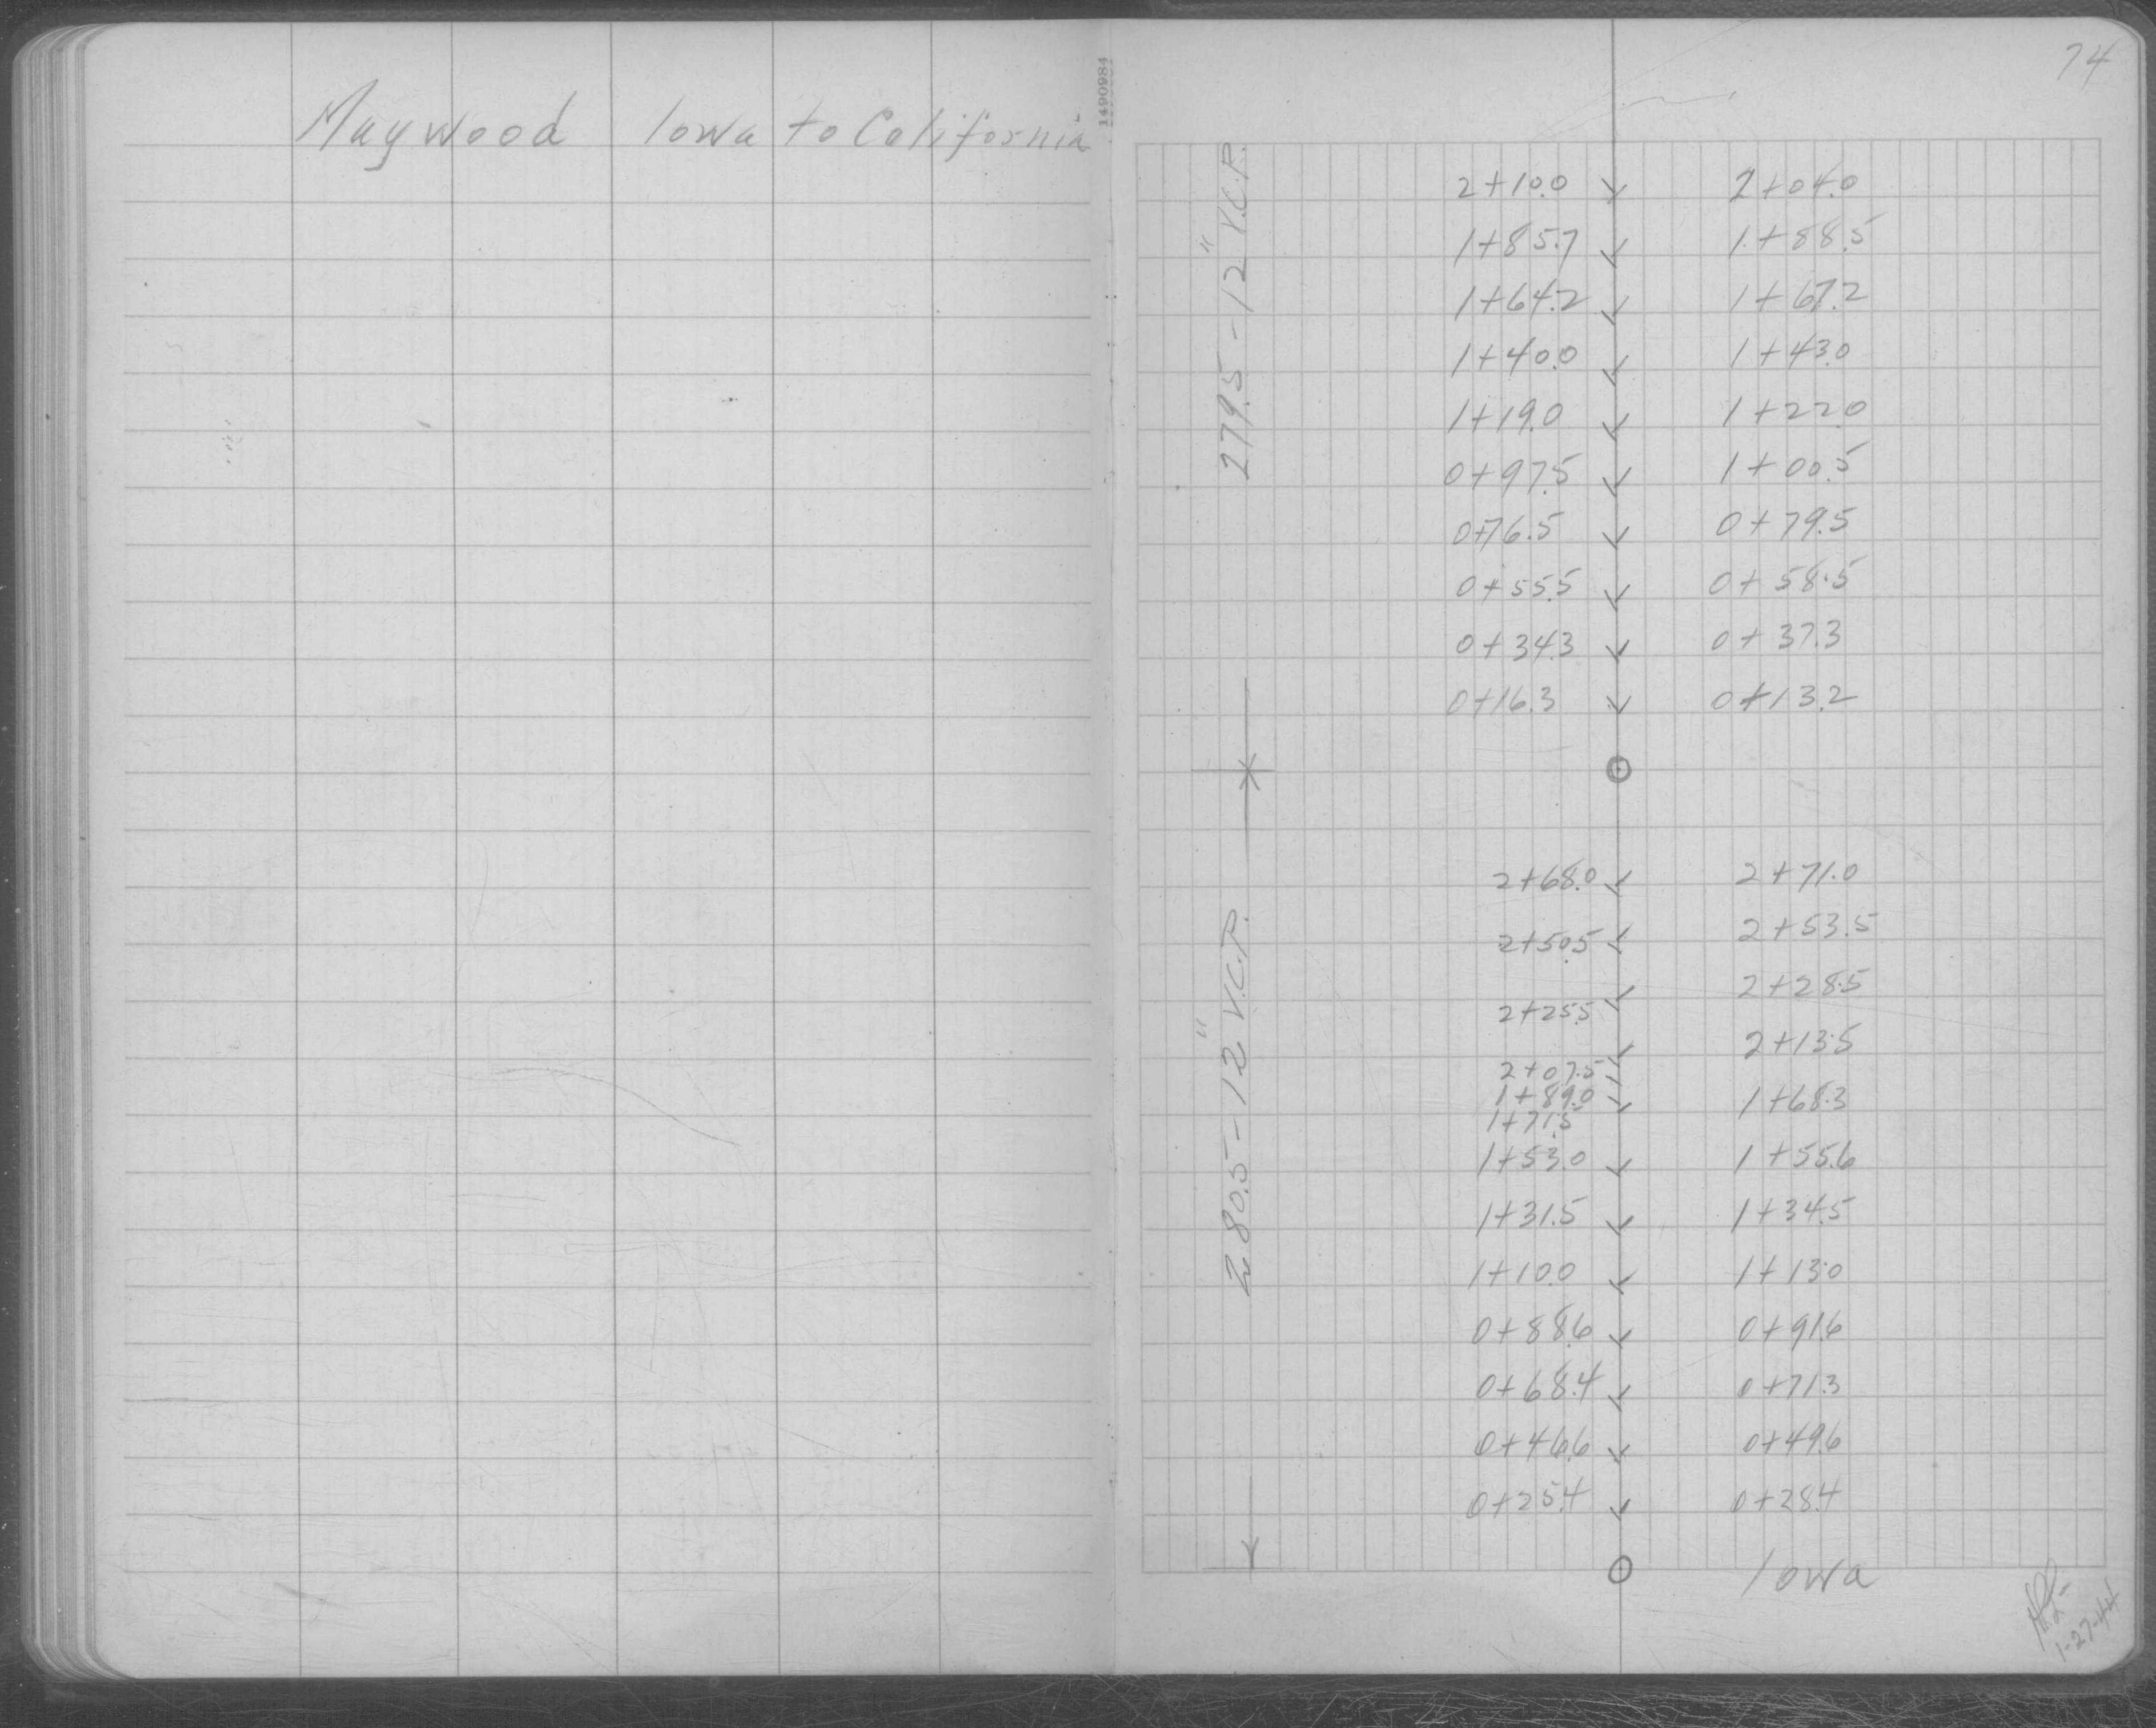 Maywood Iowa to California
1490984
74
279.5 - 12" V.C.P.
2+10.0 2+04.0
1+85.7 1+88.5
1+64.2 1+67.2
1+40.0 1+43.0
1+19.0 1+22.0
0+97.5 1+00.5
0+76.5 0+79.5
0+55.5 0+58.5
0+34.3 0+37.3
0+16.3 0+13.2
280.5 - 12" V.C.P.
2+68.0 2+71.0
2+50.5 2+53.5
2+25.5 2+28.5
2+07.5 2+13.5
1+89.0
1+71.5 1+68.3
1+53.0 1+55.6
1+31.5 1+34.5
1+10.0 1+13.0
0+88.6 0+91.6
0+68.4 0+71.3
0+46.6 0+49.6
0+25.4 0+28.4
Iowa
1-27-44